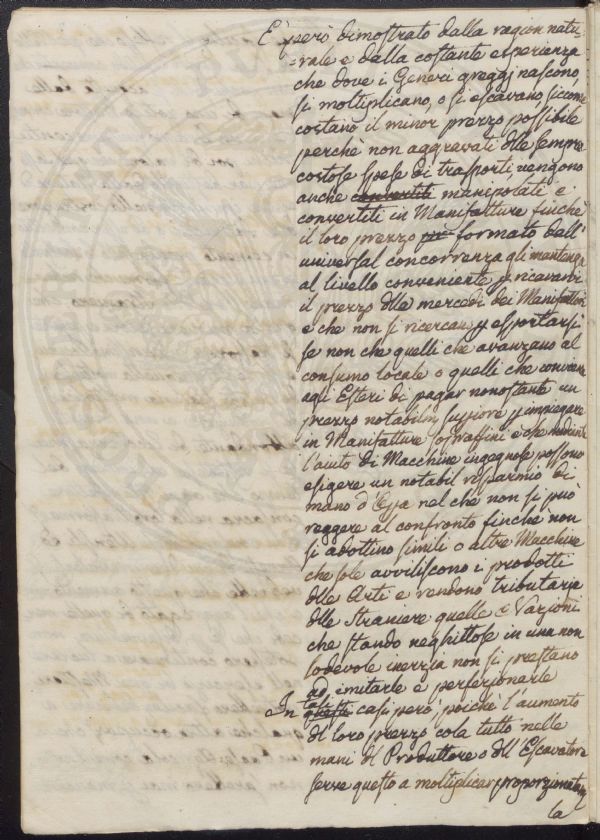 E' però dimostrato dalla ragion natu-
-rale e dalla costante esperienza
che dove i Generi greggj nascono,
si moltiplicano, o si escavano, siccome
costano il minor prezzo possibile
perchè non aggravati dlle sempre
costose spese di trasporti, vengono
anche convertiti manipolati e
convertiti in Manifatture finchè
il loro prezzo formato dall'
universal concorrenza gli mantenga
al livello conveniente p ricavarvi
il prezzo dlle mercedi dei Manifattori
e che non si ricercan p esportarsi
se non che quelli che avanzano al
consumo locale o quelli che conviene
agli Esteri di pagar nonostante un
prezzo notabilm supiore p impiegare
in Manifatture sopraffini e che mediante
l'aiuto di Macchine ingegnose possono
esigere un notabil risparmio di
mano d'Opa nel che non si può
reggere al confronto finchè non
si adottino simili o altre Macchine
che sole avviliscono i prodotti
dlle Arti e rendono tributarie
dlle Straniere quelle Nazioni
che stando neghittose in una non
lodevole inerzia non si prestano
ad imitarle e perfezionarle
In queste tali casi però poichè l'aumento
dl loro prezzo cola tutto nelle
mani dl Produttore o dll'Escavatore
serve questo a moltiplicar proporzionatam
la